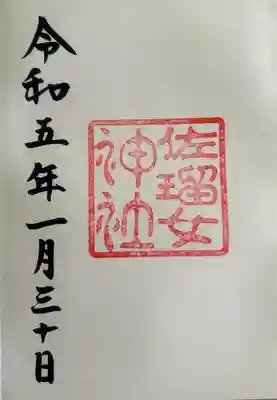 佐瑠女
神社
令和五年一月三十日